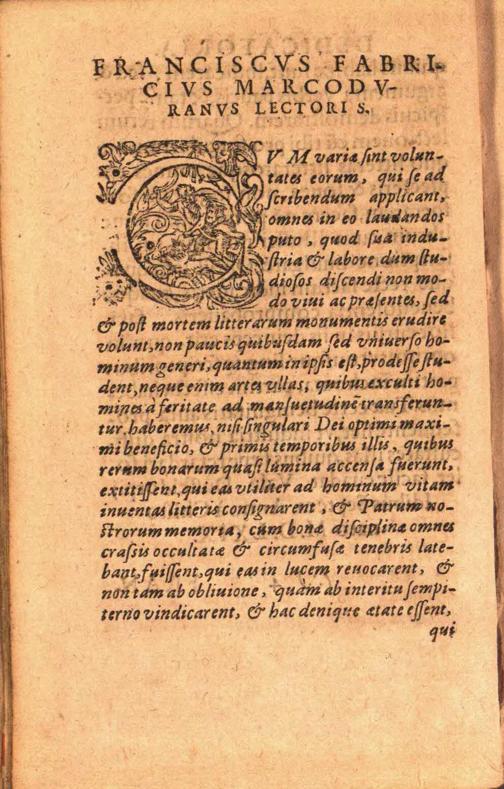 FRANCISCVS FABRI-
CIVS MARCODV-
RANVS LECTORI S.
CVM variæ sint volun-
tates eorum, qui se ad
scribendum applicant,
omnes in eo laudandos
puto, quod sua indu-
stria & labore dum stu-
diosos discendi non mo-
do viui ac præsentes, sed
& post mortem litterarum monumentis erudire
volunt, non paucis quibusdam sed vniuerso ho-
minum generi, quantum in ipsis est, prodesse stu-
dent, neque enim artes vllas, quibus exculti ho-
mines à feritate ad mansuetudinẽ transferun-
tur haberemus, nisi singulari Dei optimi maxi-
mi beneficio, & primis temporibus illis, quibus
rerum bonarum quasi lumina accensa fuerunt,
extitissent, qui eas vtiliter ad hominum vitam
inuentas litteris consignarent, & Patrum no-
strorum memoria, cùm bonæ disciplinæ omnes
crassis occultatæ & circumfusæ tenebris late-
bant, fuissent, qui eas in lucem reuocarent, &
non tam ab obliuione, quàm ab interitu sempi-
terno vindicarent, & hac denique ætate essent,
qui